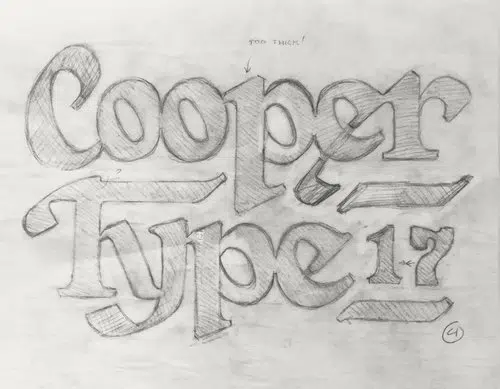 TOO THICK!
Cooper
?
Type 17
4